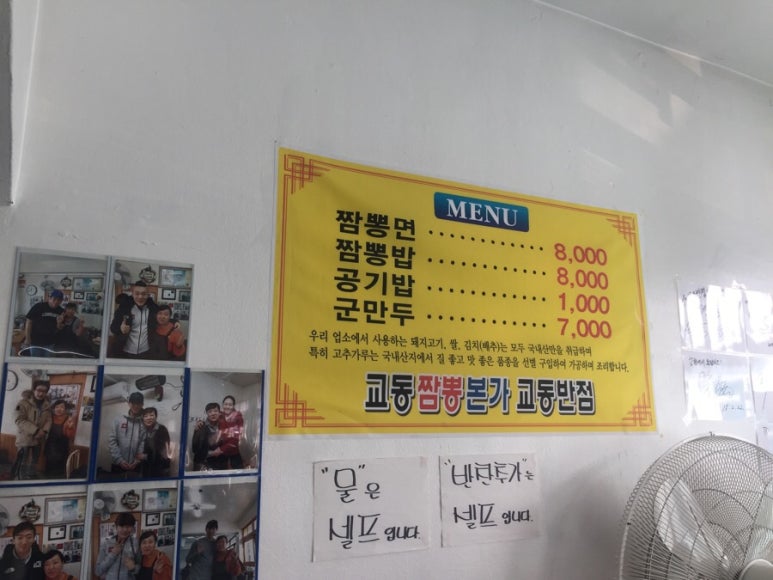 MENU
짬뽕면 ............ 8,000
짬뽕밥 ............ 8,000
공기밥 ............ 1,000
군만두 ............ 7,000
우리 업소에서 사용하는 돼지고기, 쌀, 김치(배추)는 모두 국내산만을 취급하며
특히 고추가루는 국내산지에서 질 좋고 맛 좋은 품종을 선별 구입하여 가공하며 조리합니다.
교동짬뽕본가 교동반점
"물"은
셀프 입니다.
"반찬추가"는
셀프 입니다.